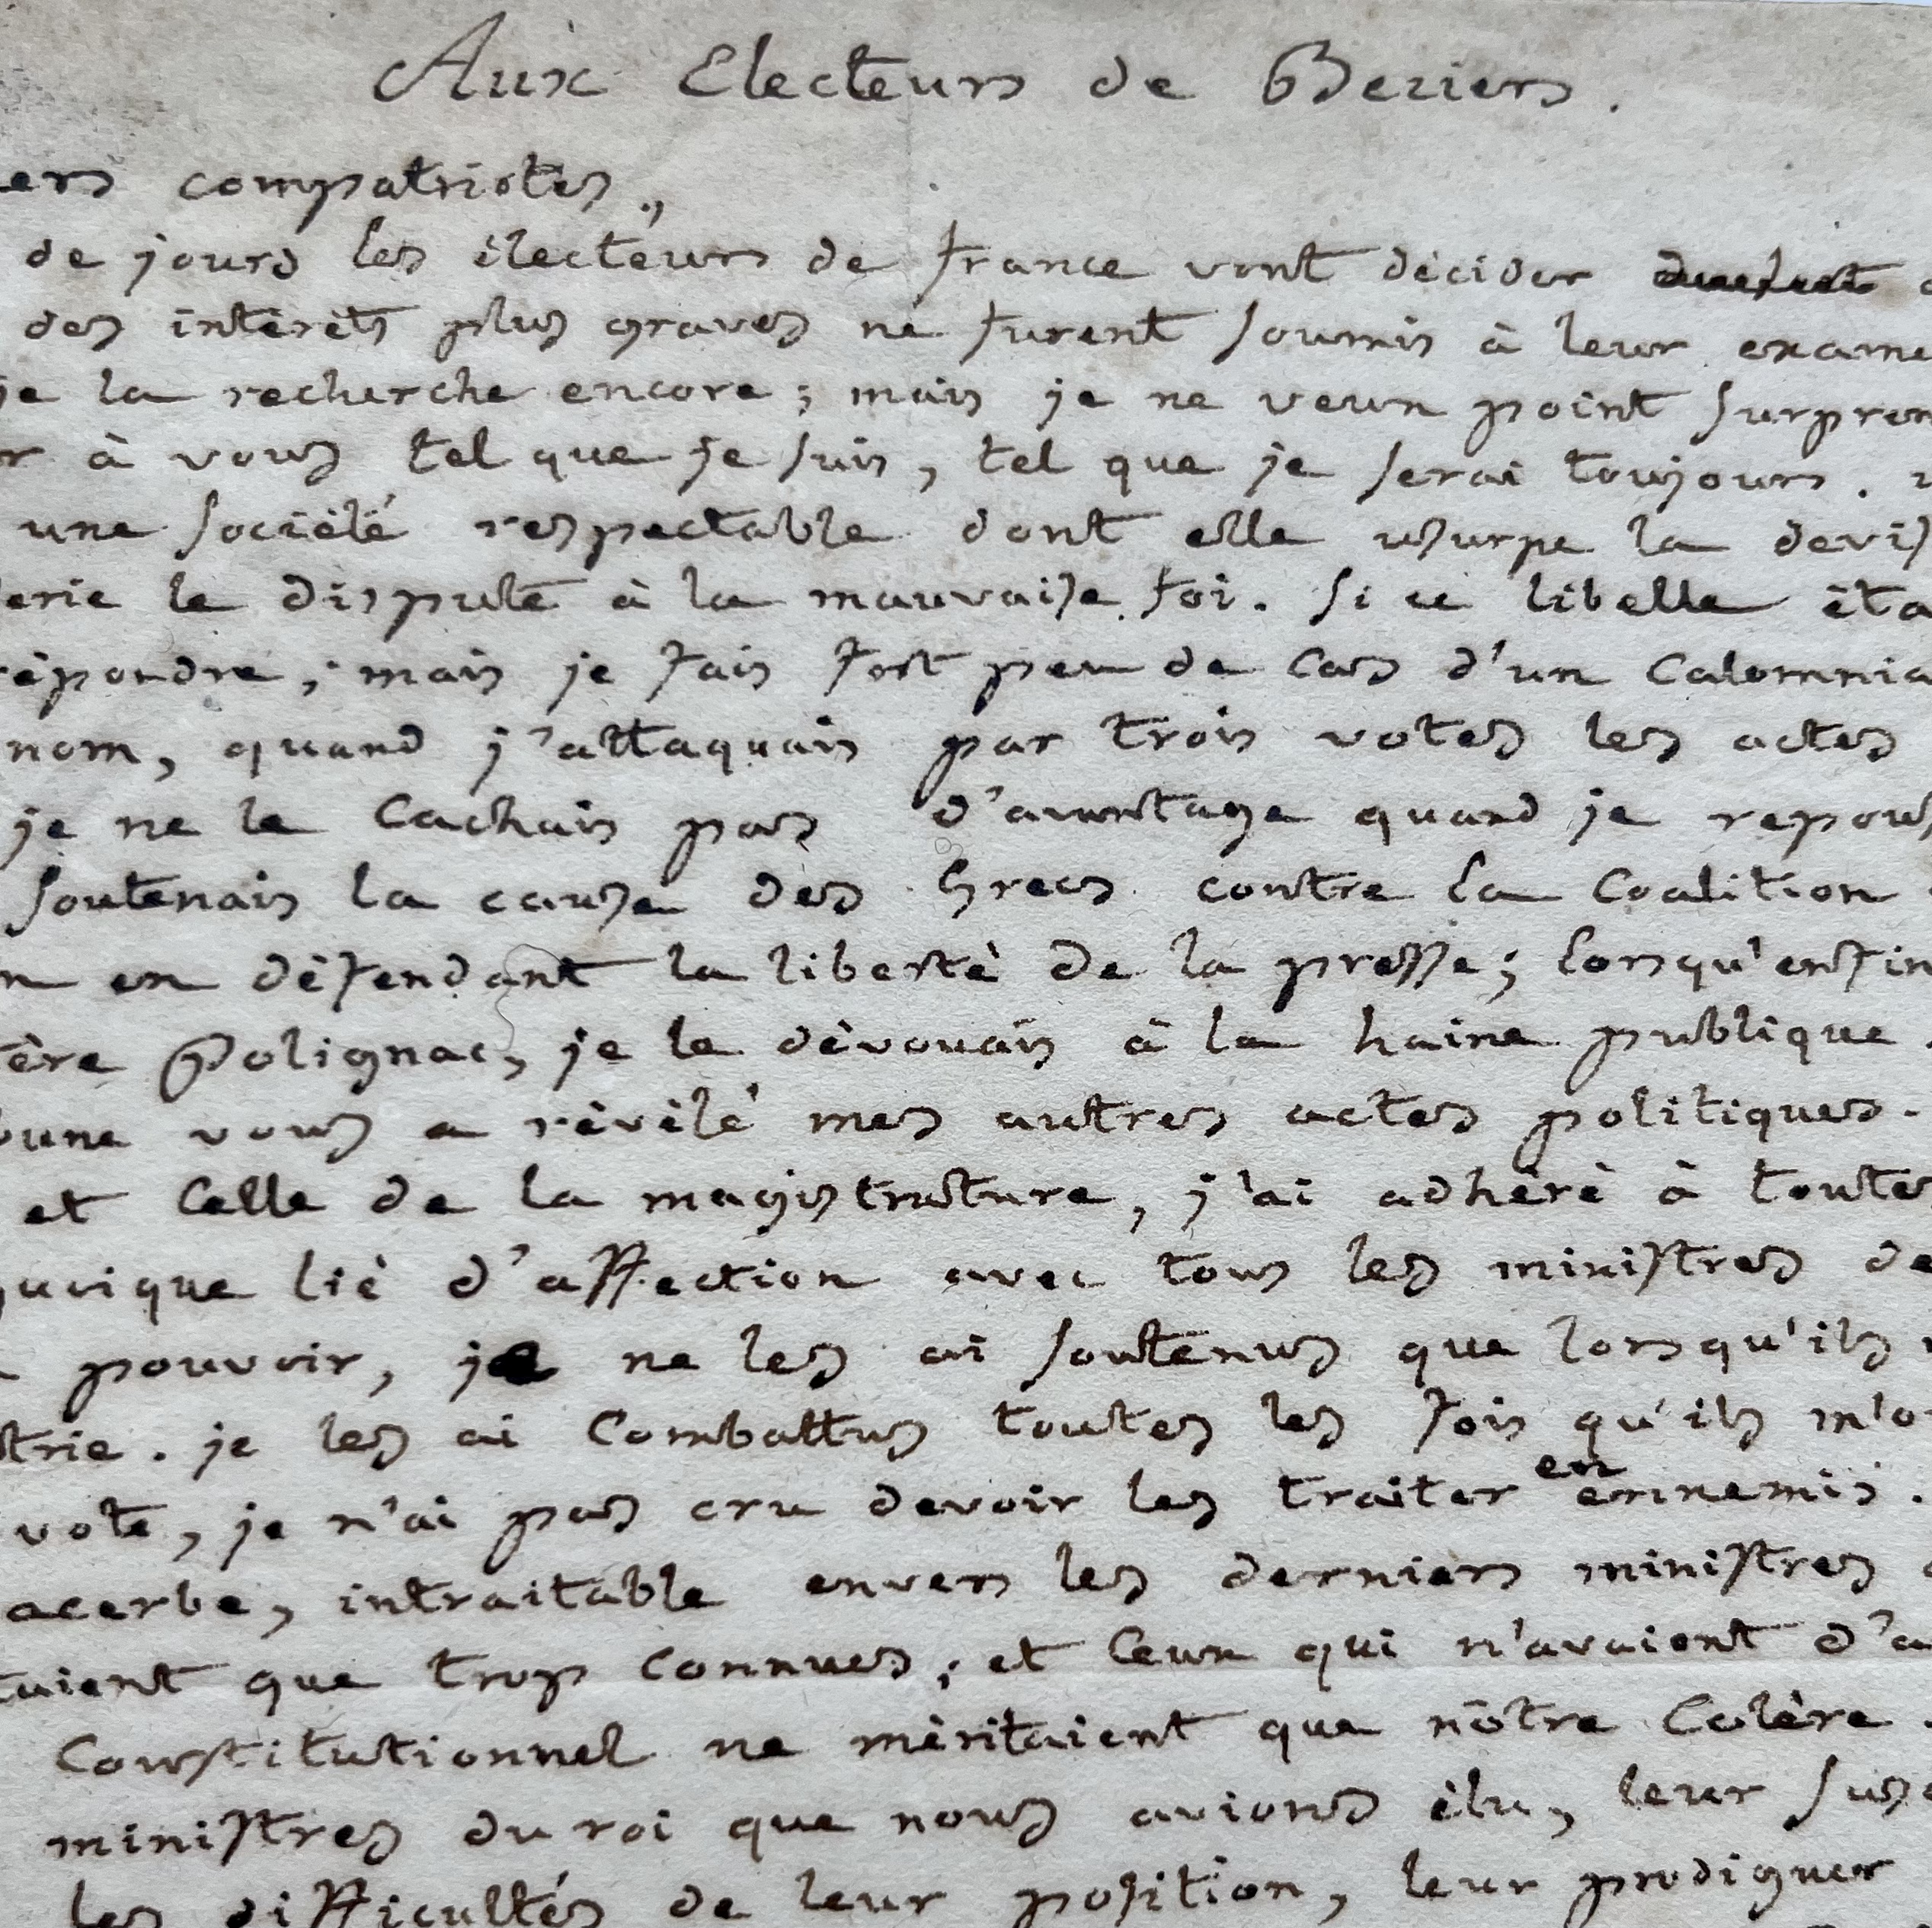 Aux Electeurs de Beziers.
ers compatriotes,
de jours les électeurs de france vont décider
des intérêts plus graves ne furent soumis à leur exame
je la recherche encore; mais je ne veux point surpren
r à vous tel que je suis, tel que je serai toujours.
une société respectable dont elle usurpe la devis
erie le dispute à la mauvaise foi. si ce libelle éta
répondre; mais je fais fort peu de cas d'un Calomnia
nom, quand j'attaquais par trois votes les actes
je ne le Cachais pas d'avantage quand je repous
soutenais la cause des Grecs contre la Coalition
n en défendant la liberté de la presse; lorsqu'enfin
tère Polignac, je le dévouais à la haine publique
bune vous a révélé mes autres actes politiques.
et Celle de la magistrature, j'ai adhéré à toutes
quoique lié d'affection avec tous les ministres de
pouvoir, je ne les ai soutenus que lorsqu'ils
trie. je les ai Combattus toutes les fois qu'ils m'o
vote, je n'ai pas cru devoir les traiter en ennemis.
acerbe, intraitable envers les derniers ministres
taient que trop connues; et Ceux qui n'avaient d'a
Constitutionnel ne méritaient que nôtre Colère.
ministres du roi que nous avions élu, leur sus
les difficultés de leur position, leur prodiguer